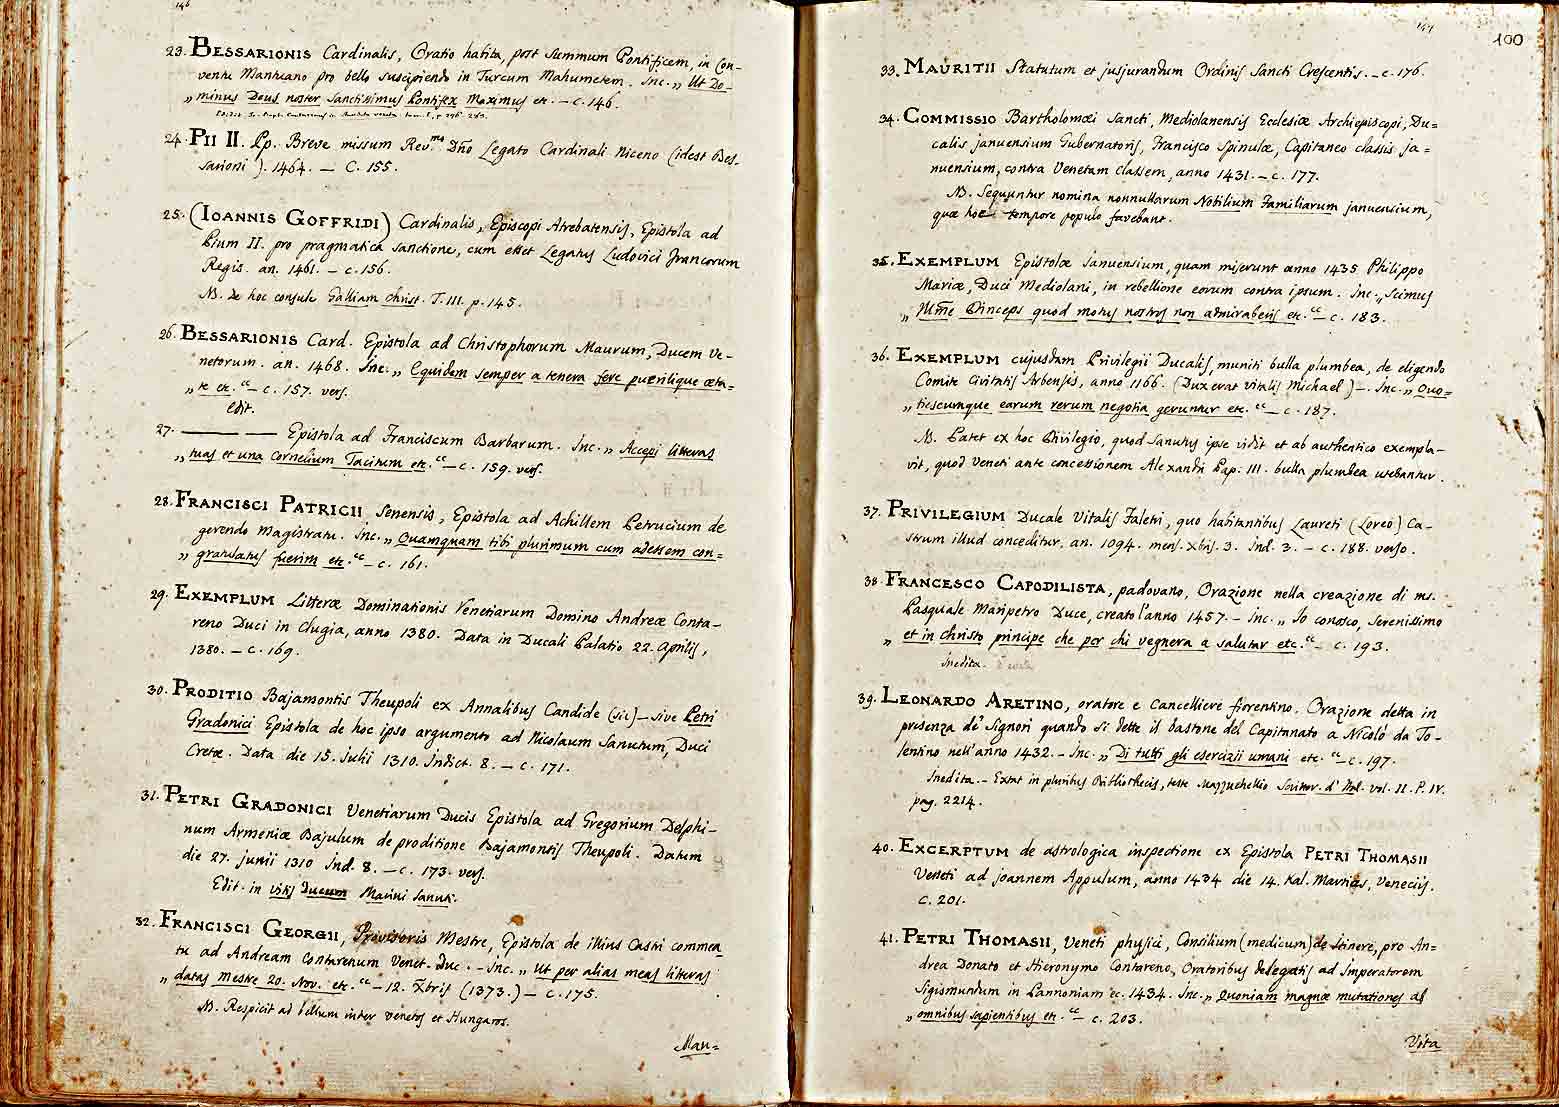 146
23. BESSARIONIS Cardinalis, Oratio habita, post Summum Pontificem, in Con-
ventu Mantuano pro bello suscipiendo in Turcum Mahumetem. Inc. „ Ut Do-
„ minus Deus noster Sanctissimus Pontifex Maximus etc. – c. 146.
24. PII II. Pp. Breve missum Rev.mo Dño Legato Cardinali Niceno (idest Bes-
sarioni). 1464. – C. 155.
25. (IOANNIS GOFFRIDI) Cardinalis, Episcopi Atrebatensis, Epistola ad
Pium II. pro pragmatica sanctione, cum esset Legatus Ludovici Francorum
Regis. an. 1461. – c. 156.
NB. de hoc consule Galliam Christ. T. III. p. 145.
26. BESSARIONIS Card. Epistola ad Christophorum Maurum, Ducem Ve-
netorum. an. 1468. Inc. „ Equidem semper a tenera fere puerilique æta=
„ te etc. cc – c. 157. vers.
Edit.
27. ——— —— Epistola ad Franciscum Barbarum. Inc. „ Accepi litteras
„ tuas et una Cornelium Tacitum etc. cc – c. 159. vers.
28. FRANCISCI PATRICII Senensis, Epistola ad Achillem Petrucium de
gerendo Magistratu. Inc. „ Quamquam tibi plurimum cum adessem con=
„ gratulatus fuerim etc. cc – c. 161.
29. EXEMPLUM Litteræ Dominationis Venetiarum Domino Andreæ Conta-
reno Duci in Clugia, anno 1380. Data in Ducali Palatio 22. Aprilis,
1380. – c. 169.
30. PRODITIO Bajamontis Theupoli ex Annalibus Candide (sic) – sive Petri
Gradonici Epistola de hoc ipso argumento ad Nicolaum Sanutum, Duci
Cretæ. Data die 15. Julii 1310. Indict. 8. – c. 171.
31. PETRI GRADONICI Venetiarum Ducis Epistola ad Gregorium Delphi-
num Armeniæ Bajulum de proditione Bajamontis Theupoli. Datum
die 27. Junii 1310 Ind. 8. – c. 173. vers.
Edit. in Vitis Ducum Marini Sanuti.
32. FRANCISCI GEORGII, Provisoris Mestre, Epistola de illius Castri commea
tu ad Andream Contarenum Venet. Duc. – Inc. „ Ut per alias meas literas
„ datas Mestre 20. Nov. etc. cc – 12. Xbris (1373.) – c. 175.
NB. Respicit ad bellum inter Venetos et Hungaros.
Mau=
147
100
33. MAURITII Statutum et jusjurandum Ordinis Sancti Crescentis. – c. 176.
34. COMMISSIO Bartholomæi Sancti, Mediolanensis Ecclesiæ Archiepiscopi, Du=
calis januensium Gubernatoris, Francisco Spinulæ, Capitaneo classis ja=
nuensium, contra Venetam Classem, anno 1431. – c. 177.
NB. Sequuntur nomina nonnullarum Nobilium Familiarum januensium,
quæ hoc tempore populo favebant.
35. EXEMPLUM Epistolæ Januensium, quam miserunt anno 1435 Philippo
Mariæ, Duci Mediolani, in rebellione eorum contra ipsum. Inc. „ Scimus
„ Illme Princeps quod motus nostros non admiraberis etc. cc – c. 183.
36. EXEMPLUM cujusdam Privilegii Ducalis, muniti bulla plumbea, de eligendo
Comite Civitatis Arbensis, anno 1166. (Dux erat Vitalis Michael) –. Inc. „ Quo=
„ tiescumque earum rerum negotia geruntur etc. cc – c. 187.
NB. Patet ex hoc Privilegio, quod Sanutus ipse vidit et ab authentico exempla-
vit, quod Veneti ante concessionem Alexandri Pap. III. bulla plumbea utebantur.
37. PRIVILEGIUM Ducale Vitalis Faletri, quo habitantibus Laureti (Loreo) Ca-
strum illud conceditur. an. 1094. mens. Xbris. 3. Ind. 3. – c. 188. verso.
38. FRANCESCO CAPODILISTA, padovano, Orazione nella creazione di ms.
Pasquale Maripetro Duce, creato l'anno 1457. – Inc. „ Io conosco, Serenissimo
„ et in Christo principe che per chi vegnera a salutar etc. cc – c. 193.
Inedita.
39. LEONARDO ARETINO, oratore e Cancelliere fiorentino. Orazione detta in
presenza de' Signori quando si dette il bastone del Capitanato a Nicolò da To-
lentino nell'anno 1432. – Inc. „ Di tutti gli esercizii umani etc. cc – c. 197.
Inedita. – Extat in pluribus Bibliothecis, teste Mazzuchellio Scrittor. d'Ital. vol. II. P. IV.
pag. 2214.
40. EXCERPTUM de astrologica inspectione ex Epistola PETRI THOMASII
Veneti ad joannem Appulum, anno 1434 die 14. Kal. Martias, Venetiis.
C. 201.
41. PETRI THOMASII, Veneti physici, Consilium (medicum) de Itinere, pro An=
drea Donato et Hieronymo Contareno, Oratoribus delegatis ad Imperatorem
Sigismundum in Pannoniam ec. 1434. Inc. „ Quoniam magnæ mutationes ab
„ omnibus sapientibus etc. cc – c. 203.
Vita